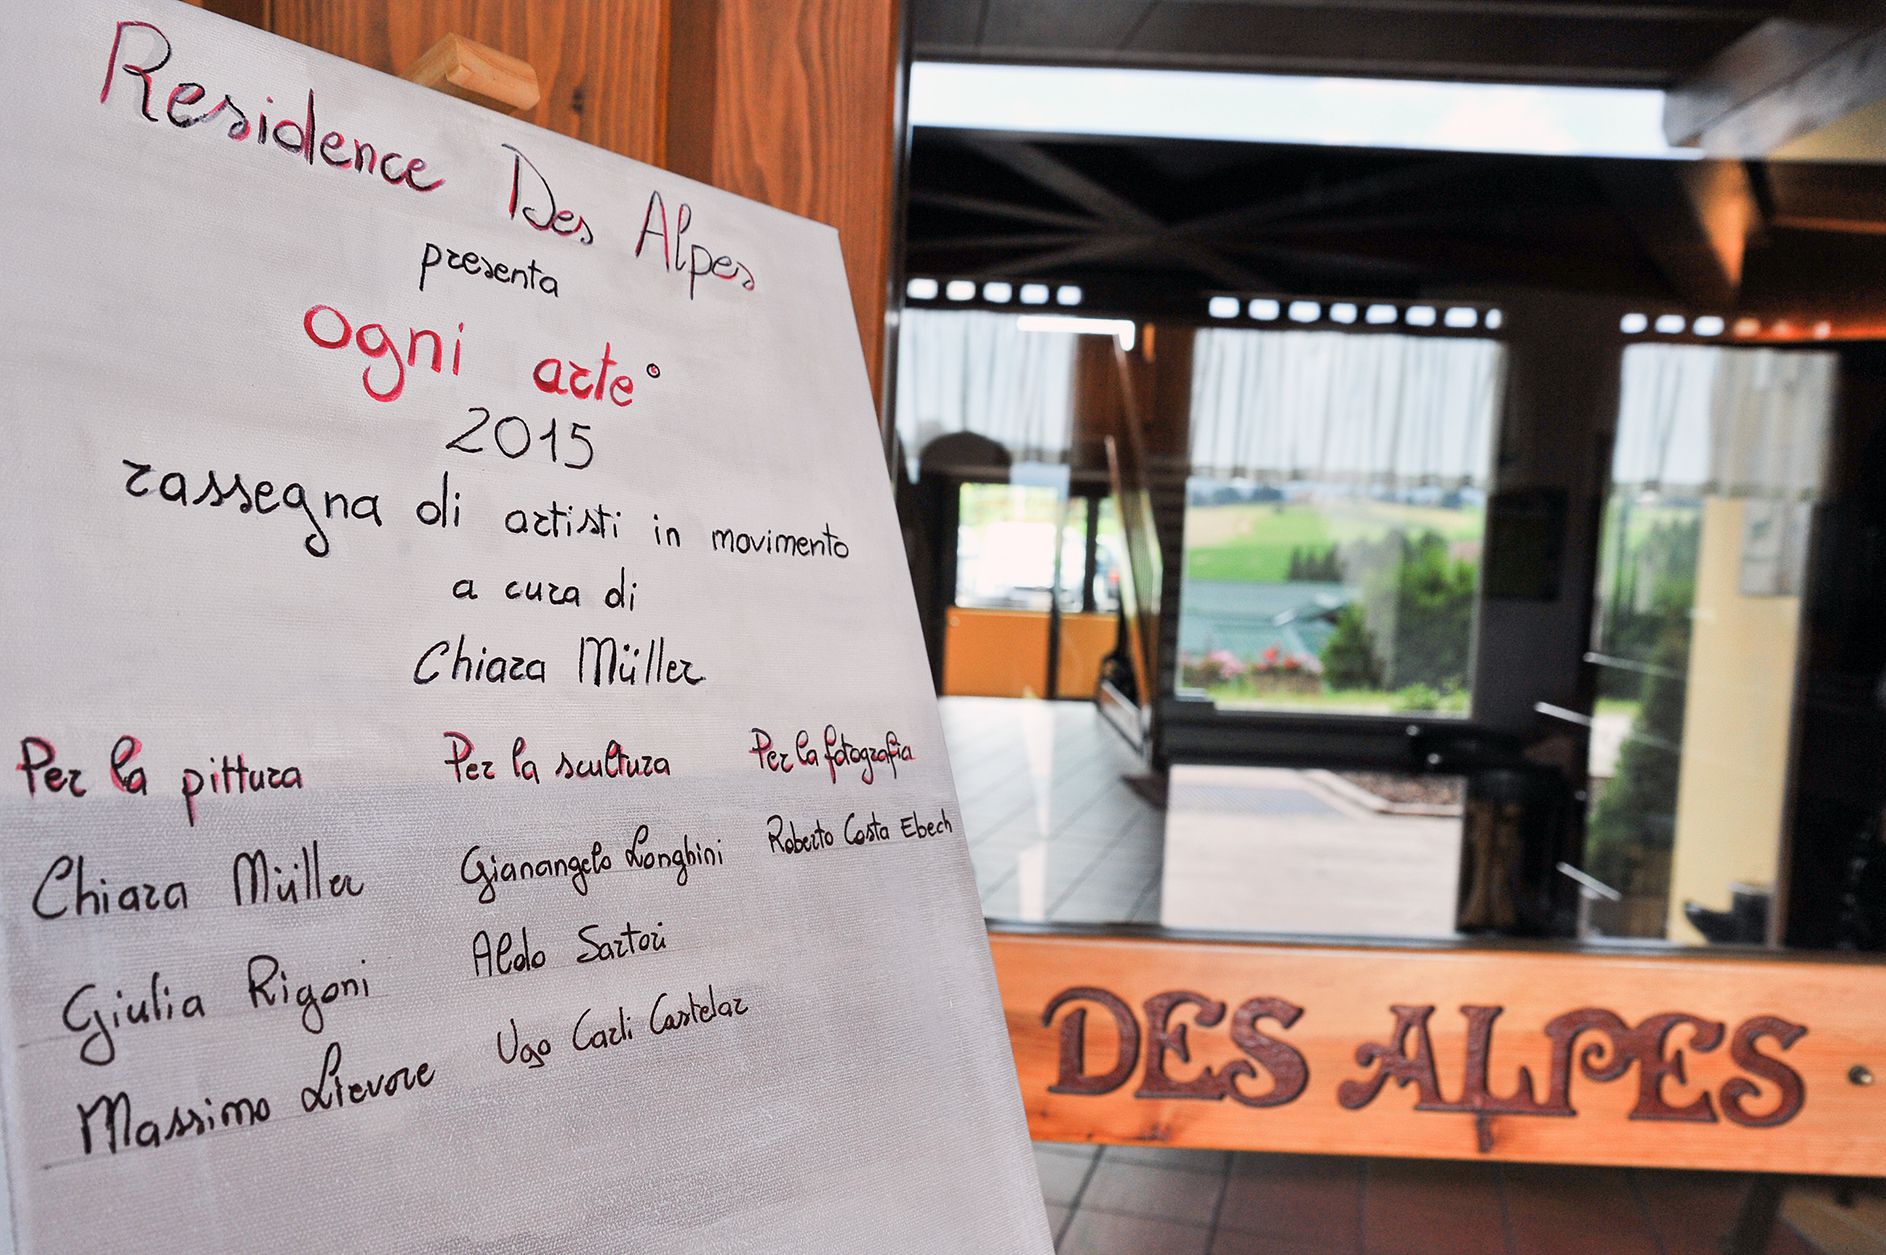 Residence Des Alpes
presenta
ogni arte°
2015
rassegna di artisti in movimento
a cura di
Chiara Müller
Per la pittura
Chiara Müller
Giulia Rigoni
Massimo Lievore
Per la scultura
Gianangelo Longhini
Aldo Sartori
Ugo Carli Castelar
Per la fotografia
Roberto Costa Ebech
DES ALPES